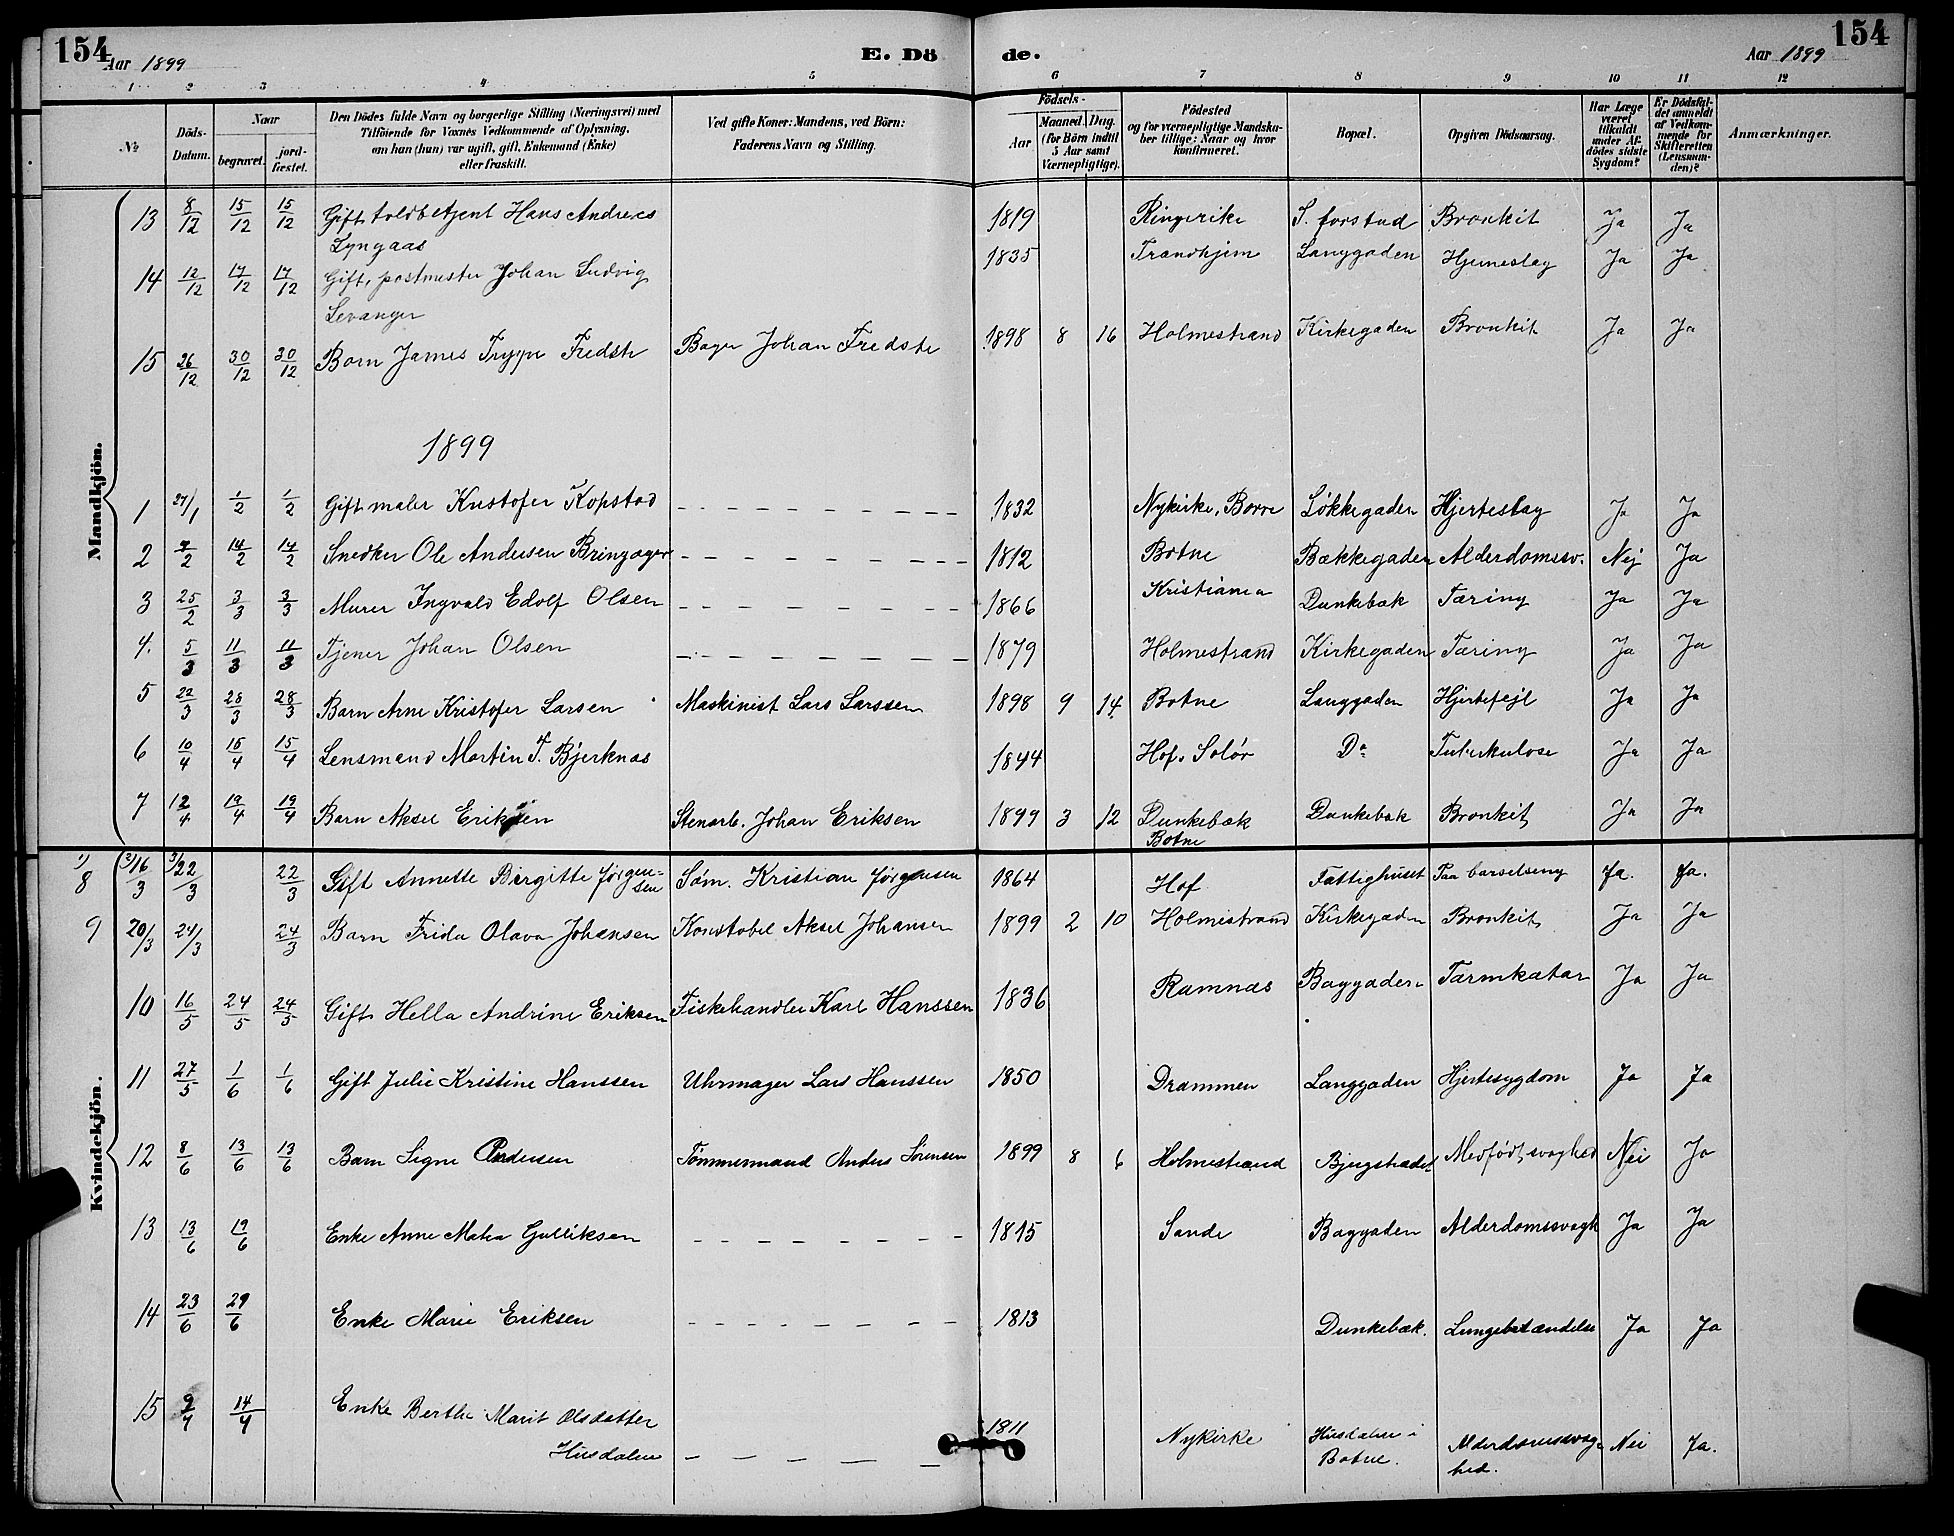 154
Aar 1899
E. Dö
de.
Aar 1899
154
1 2 3 4 5 6 7 8 9 10 11 12
No
Döds-
Datum.
Naar
begravet.
jord-
fæstet.
Den Dödes fulde Navn og borgerlige Stilling (Næringsvei) med
Tilföiende for Voxnes Vedkommende af Oplysning,
om han (hun) var ugift, gift, Enkemand (Enke)
eller fraskilt.
Ved gifte Koner: Mandens, ved Börn:
Faderens Navn og Stilling.
Födsels-
Aar
Maaned. Dag.
(for Börn indtil
5 Aar samt
Værnepligtige).
Födested
og for værnepligtige Mandska-
ber tillige: Naar og hvor
konfirmeret.
Bopæl.
Opgiven Dödsaarsag.
Har Læge
været
tilkaldt
under Af-
dödes sidste
Sygdom?
Er Dödsfal-
det anmeldt
af Vedkom-
mende for
Skifteretten
(Lensman-
den)?
Anmærkninger.
Mandkjön.
13 8/12 15/12 15/12 Gift toldbetjent Hans Andreas 1819 Ringerike S. forstad Bronkit Ja Ja
Lyngaas
14 12/12 17/12 17/12 Gift, postmester Johan Ludvig 1835 Trondhjem Langgaden Hjerneslag Ja Ja
Levanger
15 26/12 30/12 30/12 Barn James Trygve Fredste Bager Johan Fredste 1898 8 16 Holmestrand Kirkegaden Bronkit Ja Ja
1899
1 27/1 1/2 1/2 Gift maler Kristofer Kopstad 1832 Nykirke, Borre Løkkegaden Hjerteslag Ja Ja
2 7/2 14/2 14/2 Snedker Ole Andersen Bringager 1812 Botne Bækkegaden Alderdomssv. Nej Ja
3 25/2 3/3 3/3 Murer Ingvald Edolf Olsen 1866 Kristiania Dunkebæk Tæring Ja Ja
4. 5/3 11/3 11/3 Tjener Johan Olsen 1879 Holmestrand Kirkegaden Tæring Ja Ja
5 22/3 28/3 28/3 Barn Arne Kristofer Larsen Maskinist Lars Larssen 1898 9 14 Botne Langgaden Hjertefejl Ja Ja
6 10/4 15/4 15/4 Lensmand Martin T. Bjerknas 1844 Hof, Solør Do Tuberkulose Ja Ja
7 12/4 19/4 19/4 Barn Aksel Eriksen Stenarb. Johan Eriksen 1899 3 12 Dunkebæk Dunkebæk Bronkit Ja Ja
Botne
Kvindekjön.
8 16/3 22/3 22/3 Gift Annette Birgitte Jørgen- Søm. Kristian Jørgensen 1864 Hof Fattighuset Paa barselseng Ja. Ja.
sen
9 20/3 24/3 24/3 Barn Frida Olava Johansen Konstabel Aksel Johansen 1899 2 10 Holmestrand Kirkegaden Bronkit Ja Ja
10 16/5 24/5 24/5 Gift Hella Andrine Eriksen Fiskehandler Karl Hanssen 1836 Ramnæs Baggaden Tarmkatar Ja Ja
11 27/5 1/6 1/6 Gift Julie Kristine Hanssen Uhrmager Lars Hanssen 1850 Drammen Langgaden Hjertesygdom Ja Ja
12 8/6 13/6 13/6 Barn Signe Andersen Tømmermand Anders Sørensen 1899 8 6 Holmestrand Bjergstrædet Medfødt svaghed Nei Ja
13 13/6 19/6 Enke Anne Matea Gulliksen 1815 Sande Baggaden Alderdomssvagh Ja Ja
14 23/6 29/6 Enke Marie Eriksen 1813 Dunkebæk. Lungebetændelse Ja Ja
15 9/7 14/7 Enke Berthe Marit Olsdatter 1811 Nykirke Husdalen i Alderdomssvag- Nei Ja.
Husdalen Botne. hed.